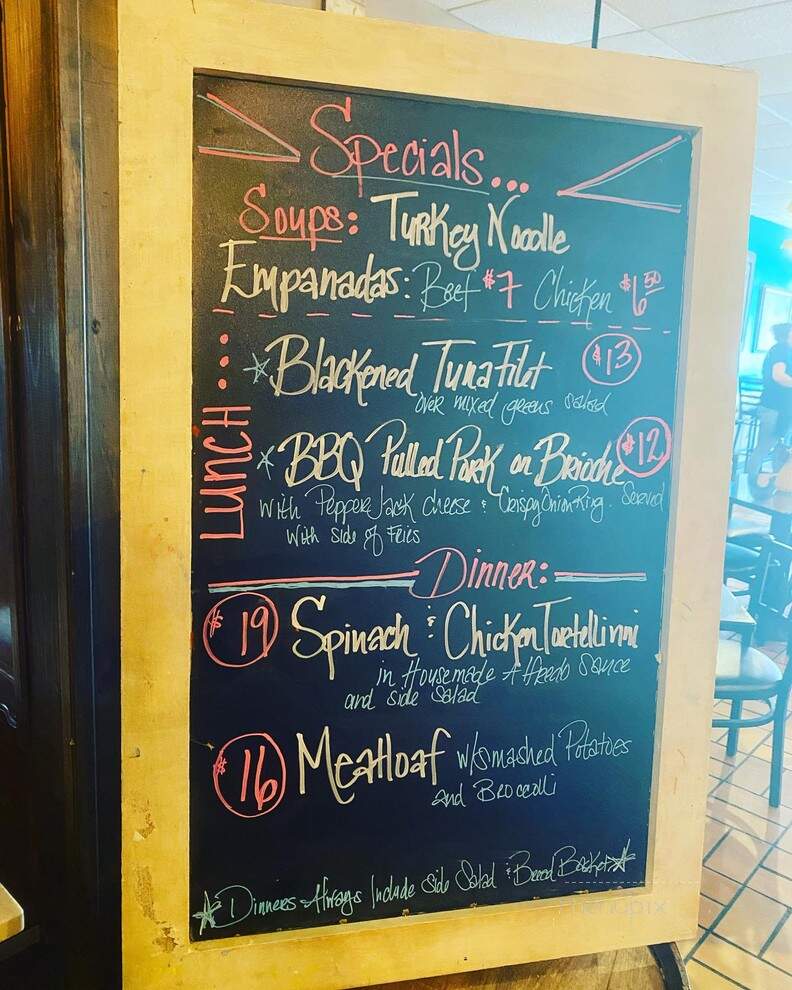 Specials...
Soups: Turkey Noodle
Empanadas: Beef $7 Chicken $6.50
LUNCH...
Blackened Tuna Filet $13
over mixed greens salad
BBQ Pulled Pork on Brioche $12
with Pepper Jack cheese & Crispy Onion Ring. Served
with side of Fries
Dinner:
$19 Spinach & Chicken Tortellinni
in Housemade Alfredo Sauce
and side Salad
$16 Meatloaf w/smashed Potatoes
and Broccolli
Dinners Always Include side Salad & Bread Basket